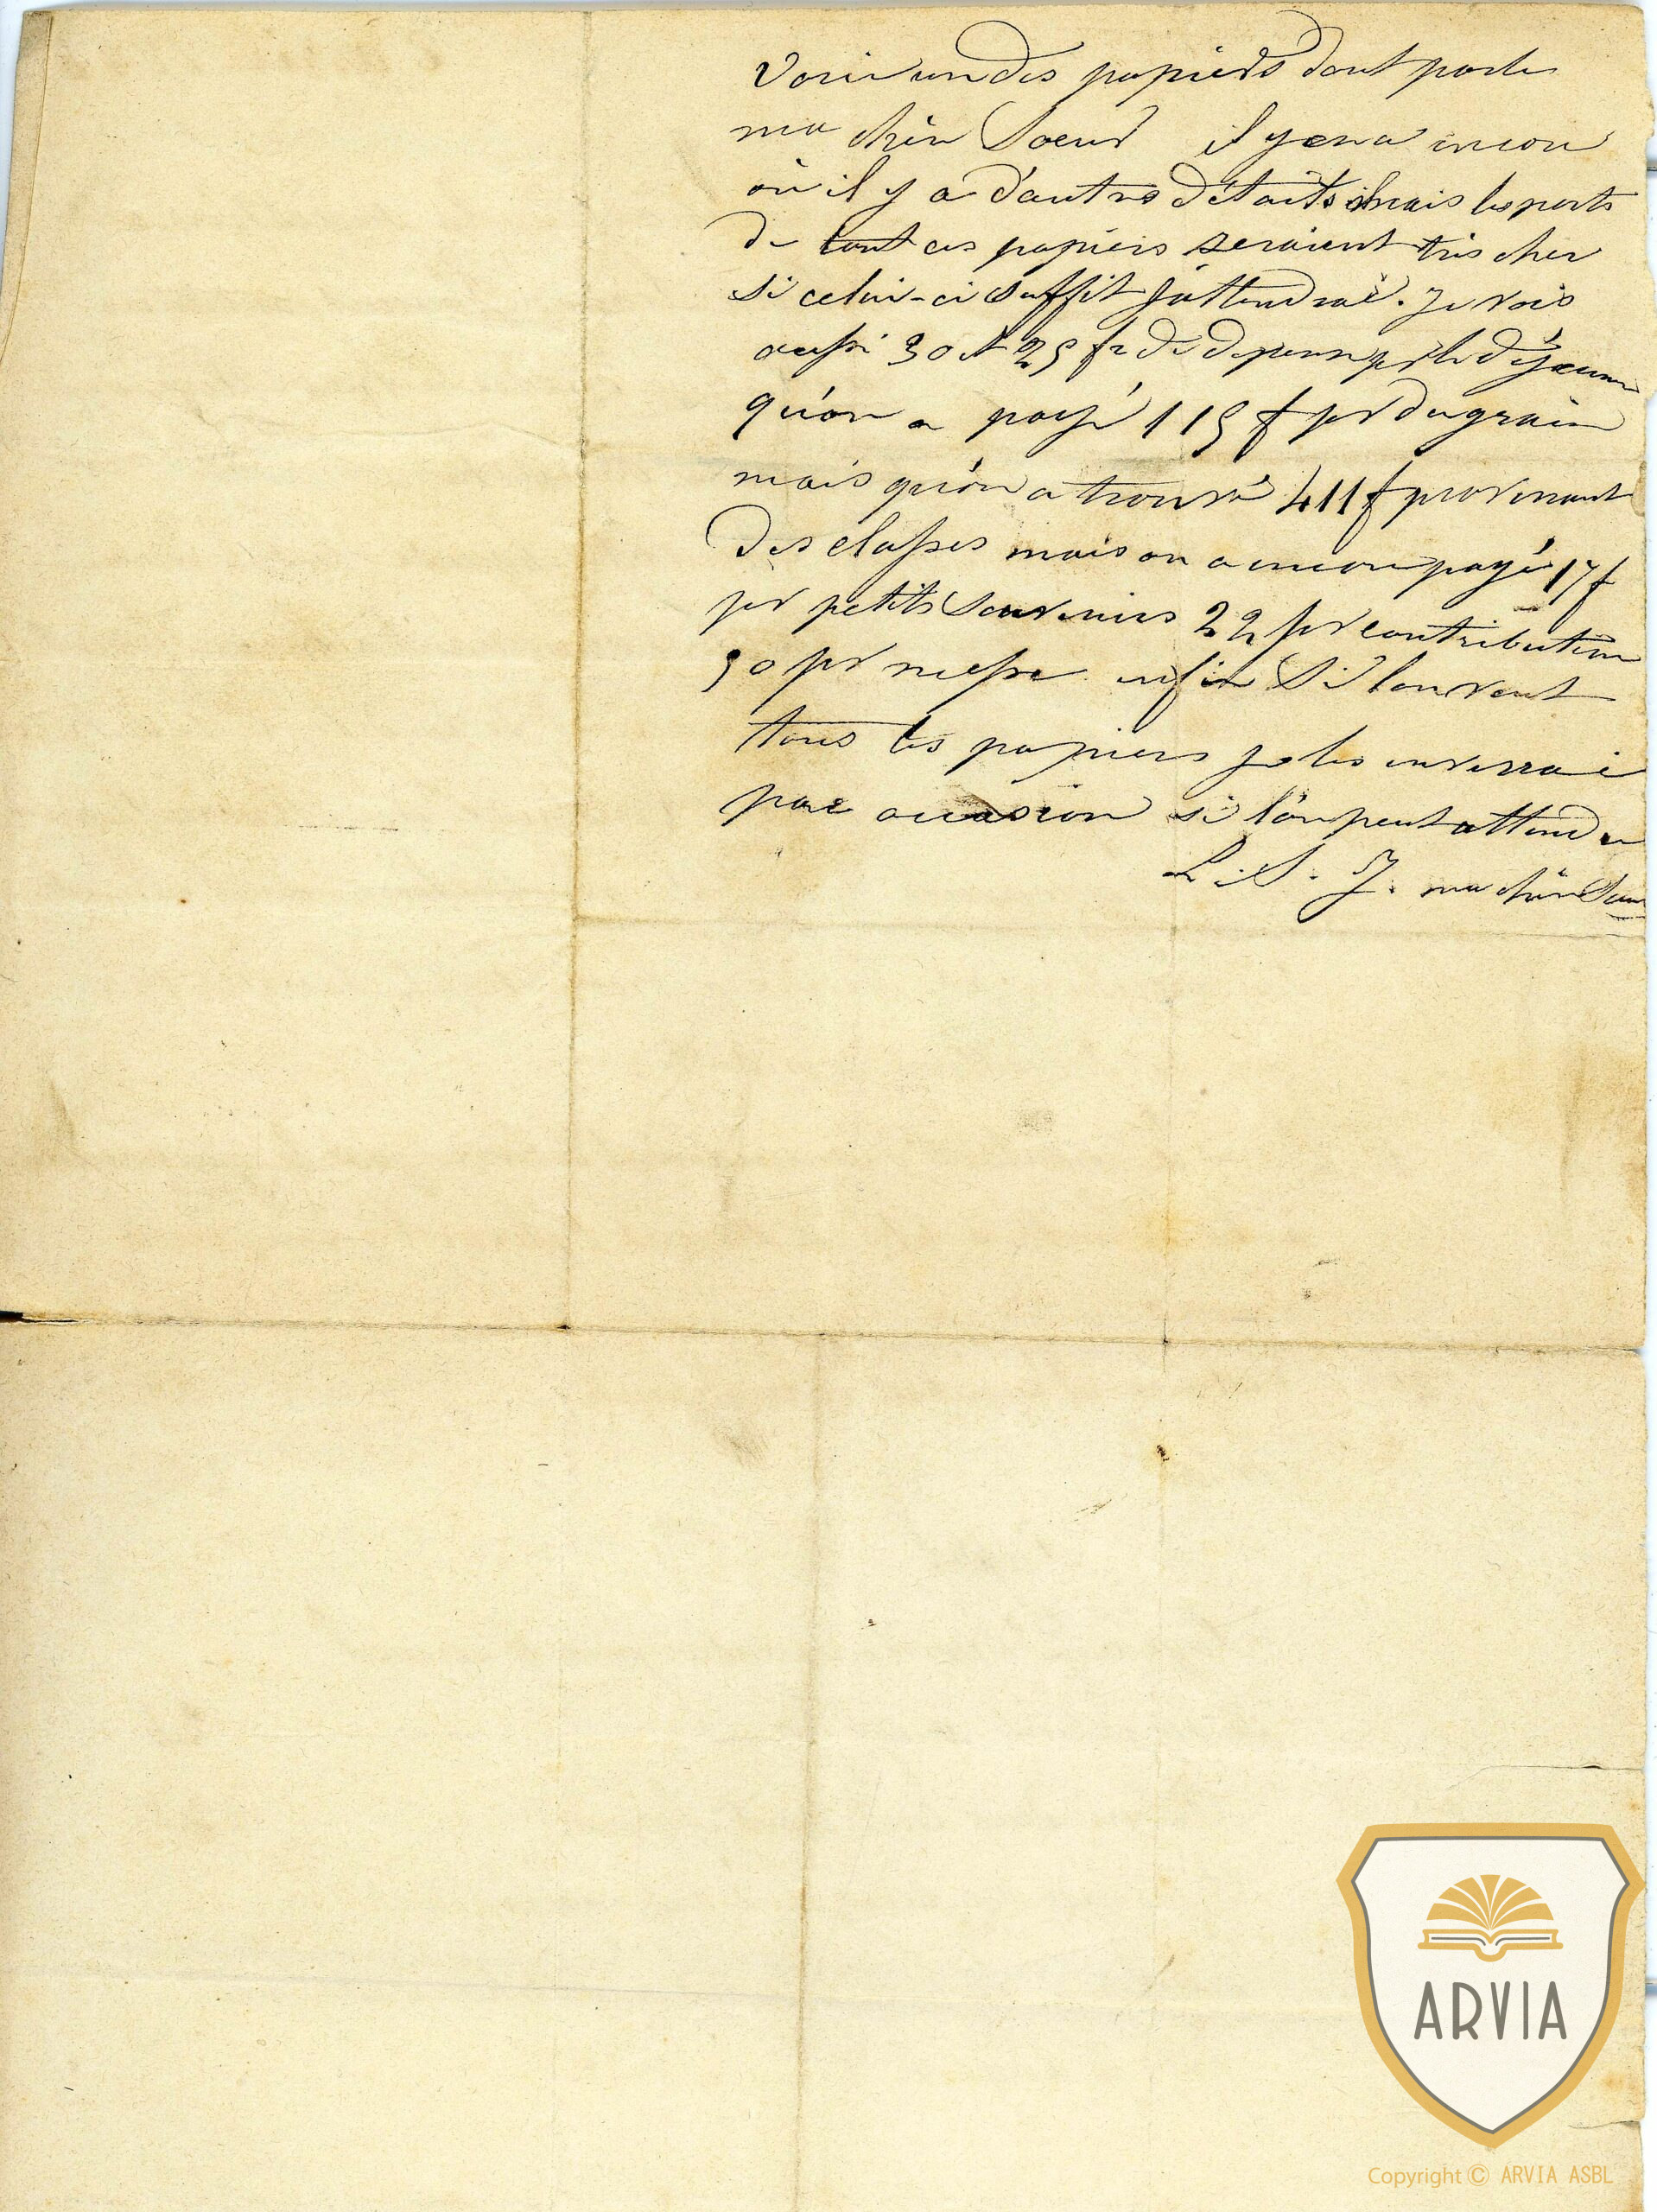 Voici un des papiers dont parle
ma chère Soeur il y en a encore
où il y a d'autres détails mais les ports
de tout ces papiers seraient très cher
si celui-ci suffit j'attendrai. Je vois
aussi 30 et 25 fr de dépense pr le déjeuner
qu'on a payé 115 f pr du grain
mais qu'on a trouvé 411 f provenant
des classes mais on a encore payé 17 f
pr petits Souvenirs 22 pr contribution
50 pr messe enfin Si l'on veut
tous les papiers je les enverrai
par occasion si l'on peut attendre
L. S. J. ma chère Soeur
ARVIA
Copyright © ARVIA ASBL